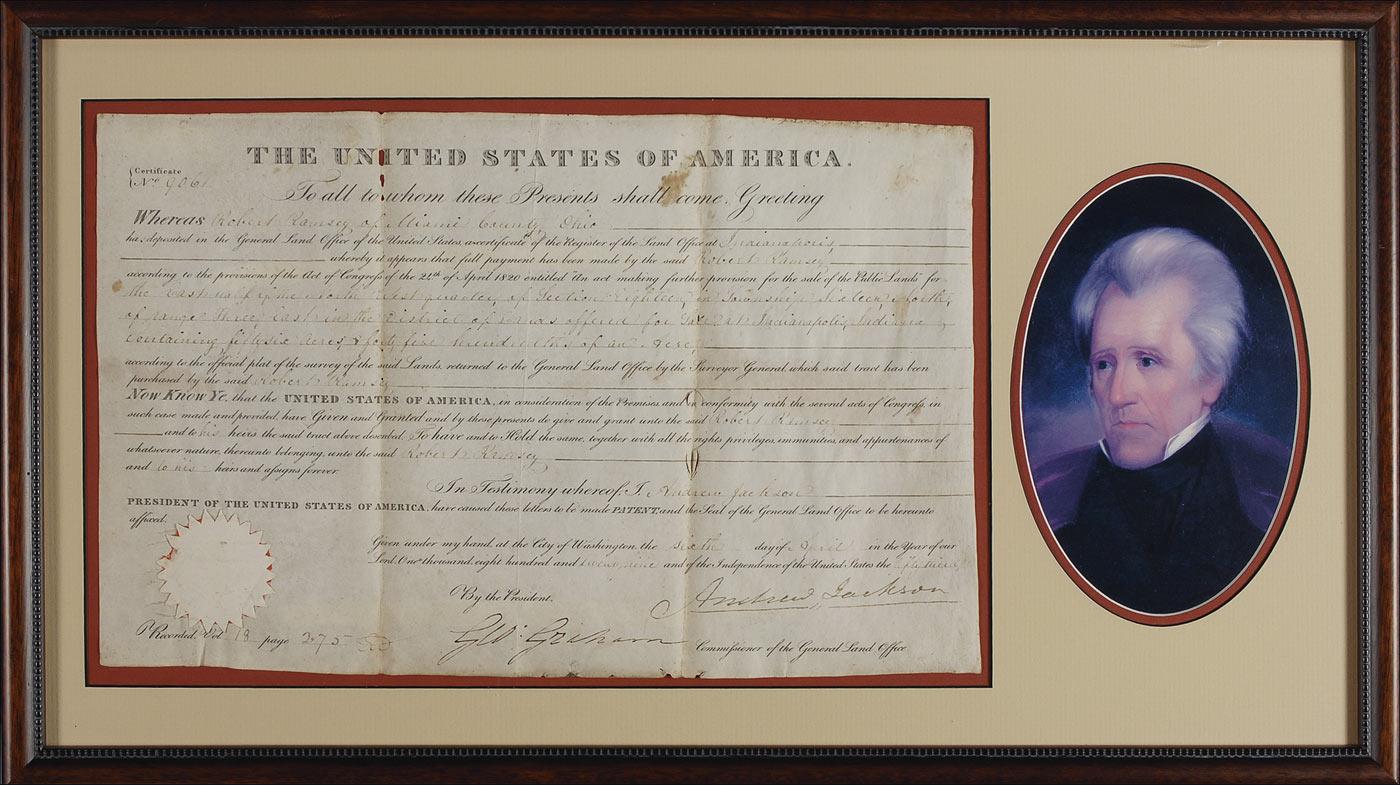 THE UNITED STATES OF AMERICA.
Certificate
No. 906
To all to whom these Presents shall come, Greeting
Whereas Robert Ramsey of Miami County Ohio
has deposited in the General Land Office of the United States, a certificate of the Register of the Land Office at Indianapolis,
whereby it appears that full payment has been made by the said Robert Ramsey
according to the provisions of the Act of Congress of the 24th of April 1820 entitled "An act making further provision for the sale of the Public Lands" for
the East half of the North West quarter, of Section Eighteen, in Township Sixteen, North,
of range three, East, in the District of Lands offered for Sale at Indianapolis, Indiana,
containing fifty six Acres, & forty five hundredths of an Acre,
according to the official plat of the survey of the said Lands, returned to the General Land Office by the Surveyor General, which said tract has been
purchased by the said Robert Ramsey
Now Know Ye, that the UNITED STATES OF AMERICA, in consideration of the Premises and in conformity with the several acts of Congress, in
such case made and provided, have Given and Granted and by these presents do give and grant unto the said Robert Ramsey
and to his heirs the said tract above described. To have and to Hold the same, together with all the rights privileges, immunities, and appurtenances of
whatsoever nature, thereunto belonging, unto the said Robert Ramsey
and to his heirs and assigns forever.
In Testimony whereof, I, Andrew Jackson
PRESIDENT OF THE UNITED STATES OF AMERICA, have caused these letters to be made PATENT, and the Seal of the General Land Office to be hereunto
affixed.
Given under my hand, at the City of Washington, the sixth day of April in the Year of our
Lord, One thousand, eight hundred and twenty nine and of the Independence of the United States the fifty third
By the President,
Andrew Jackson
Recorded, Vol 18 page 275
Geo: Graham Commissioner of the General Land Office